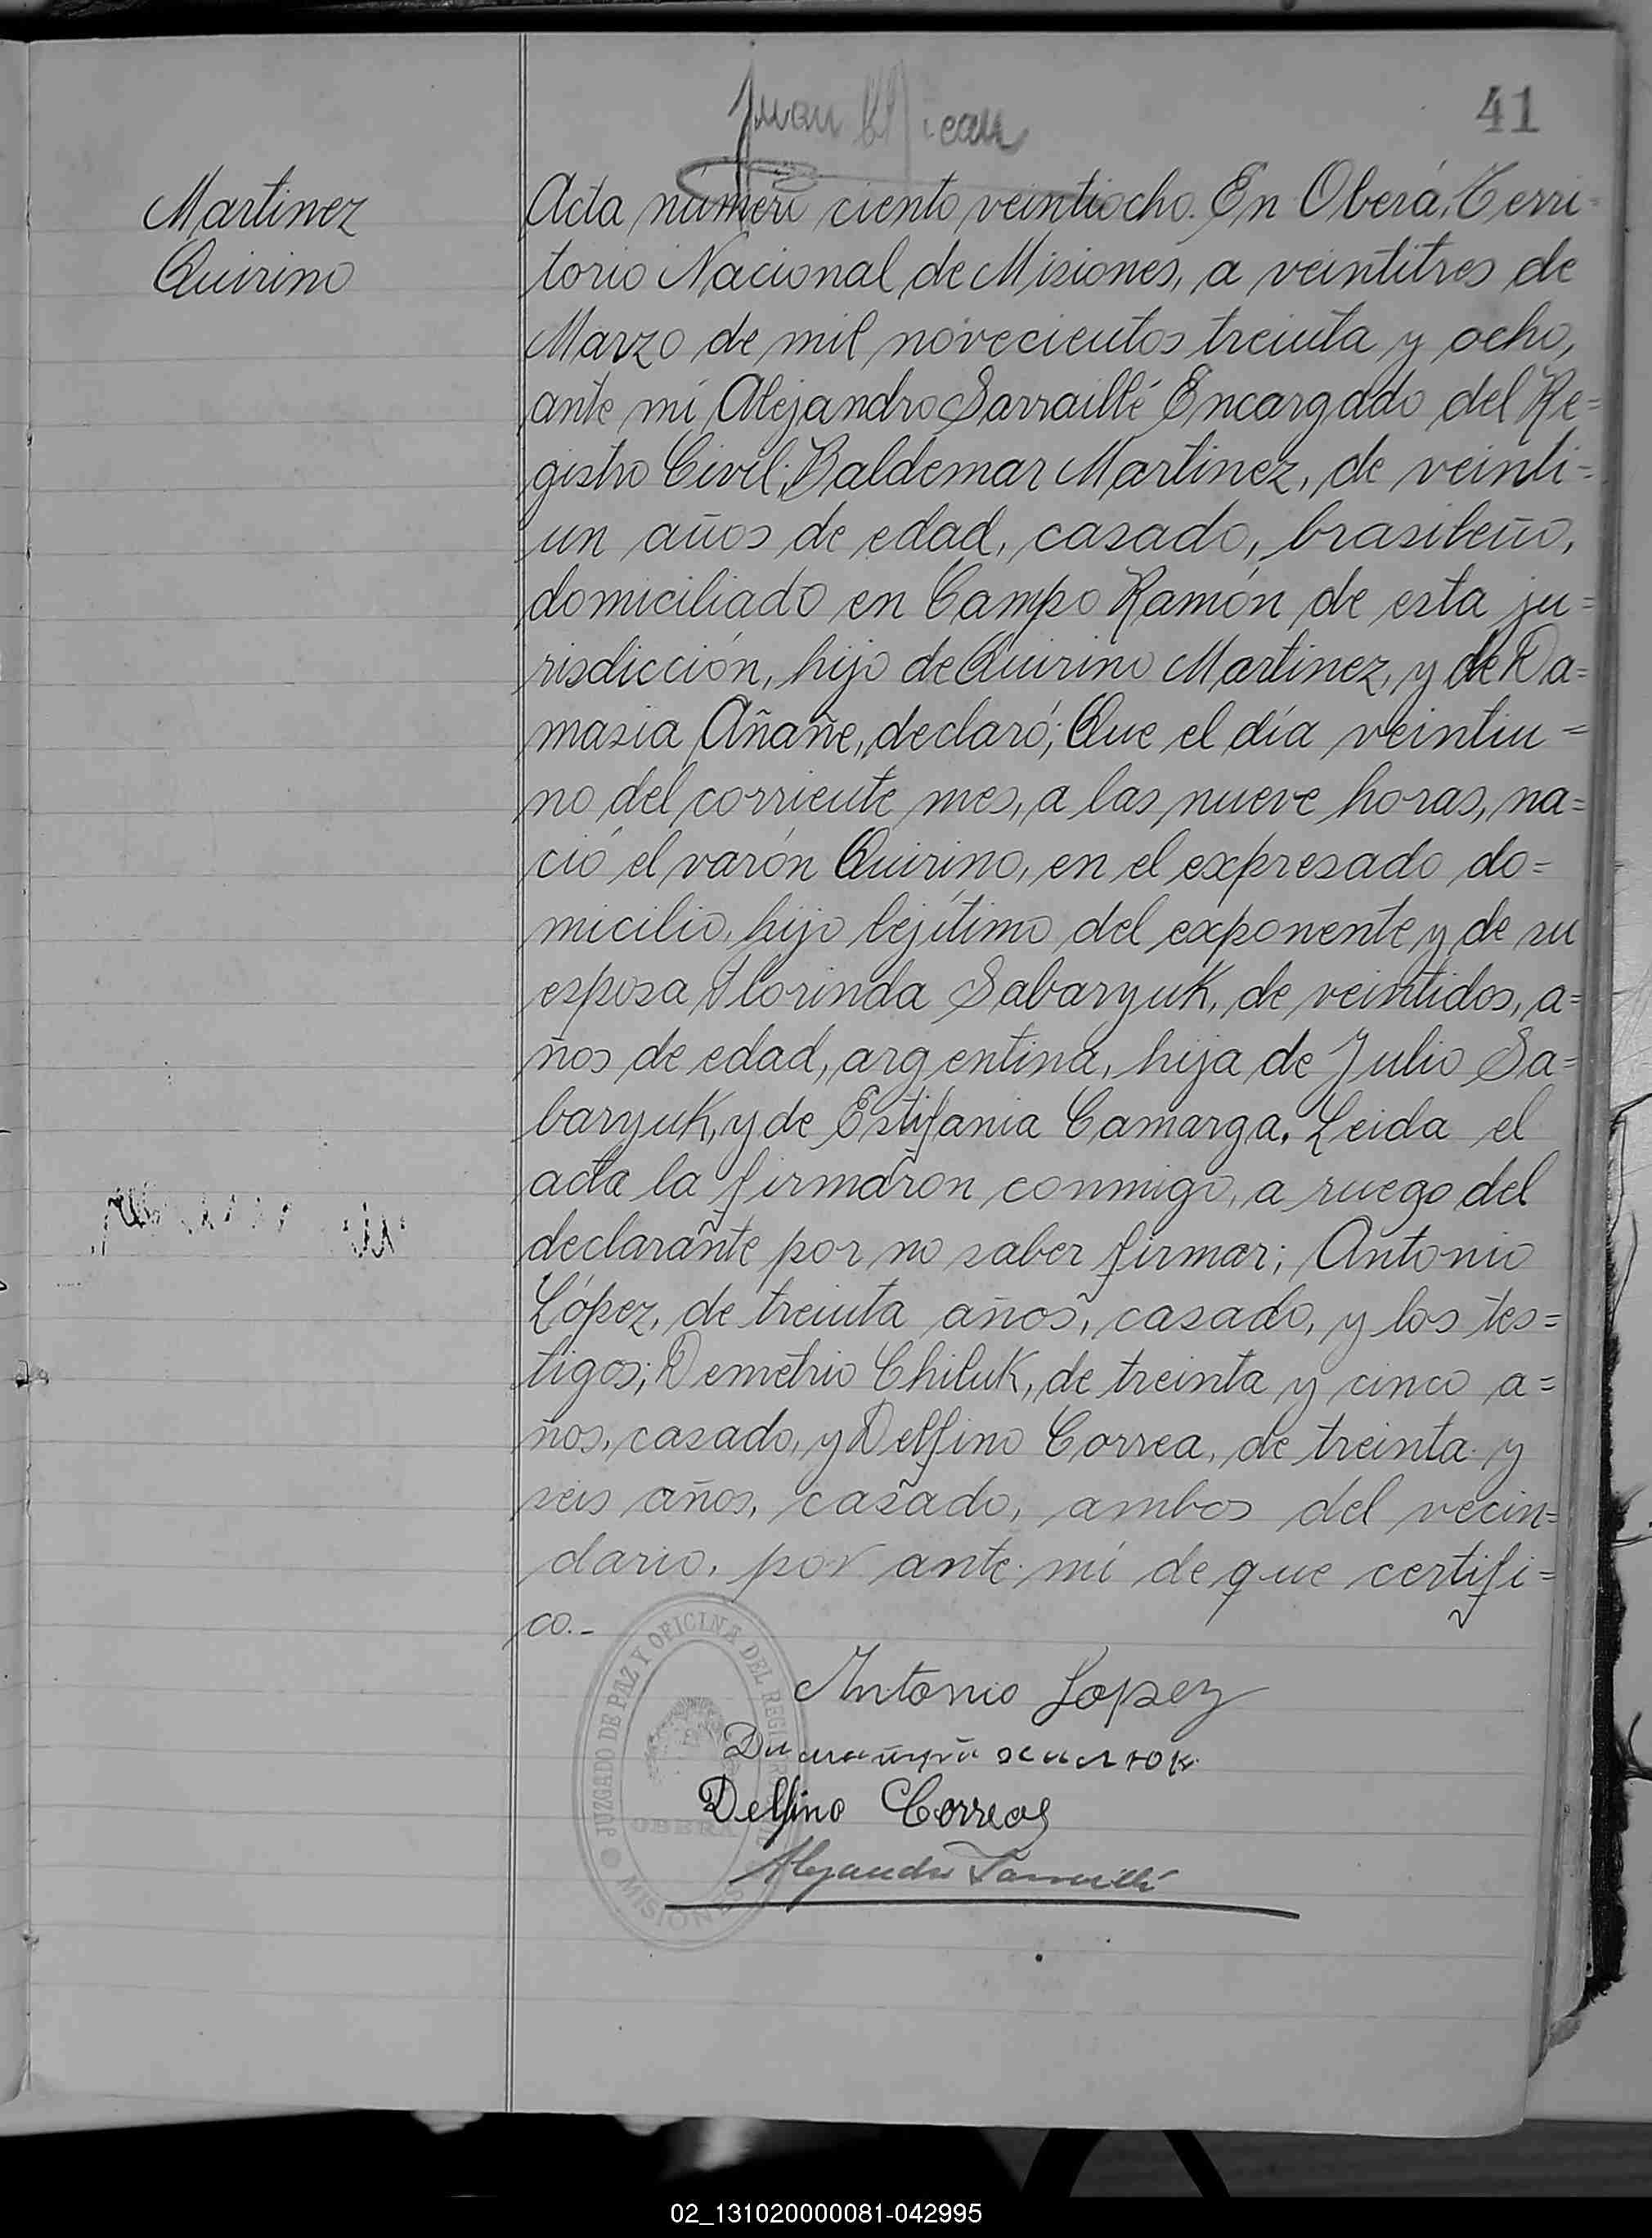 41
Juan
Martinez
Quirino
Acta número ciento veintiocho. En Oberá, Terri-
torio Nacional de Misiones, a veintitres de
Marzo de mil novecientos treinta y ocho,
ante mí Alejandro Sarraillé Encargado del Re=
gistro Civil; Baldemar Martinez, de veinti=
un años de edad, casado, brasileño,
domiciliado en Campo Ramón de esta ju=
risdicción, hijo de Quirino Martinez, y de Da=
masia Añañe, declaró; Que el día veintiu=
no del corriente mes, a las nueve horas, na=
ció el varón Quirino, en el expresado do=
micilio, hijo lejítimo del exponente y de su
esposa Florinda Sabaryuk, de veintidos, a=
ños de edad, argentina, hija de Julio Sa=
baryuk, y de Estifania Camarga. Leida el
acta la firmaron conmigo, a ruego del
declarante por no saber firmar; Antonio
López, de treinta años, casado, y los tes=
tigos; Demetrio Chiluk, de treinta y cinco a=
ños, casado, y Delfino Correa, de treinta y
seis años, casado, ambos del vecin=
dario, por ante mí de que certifi=
co.-
Antonio Lopez
Delfino Correa
Alejandro Sarraillé
JUZGADO DE PAZ Y OFICINA DEL REGISTRO CIVIL
OBERA
MISIONES
02_131020000081-042995